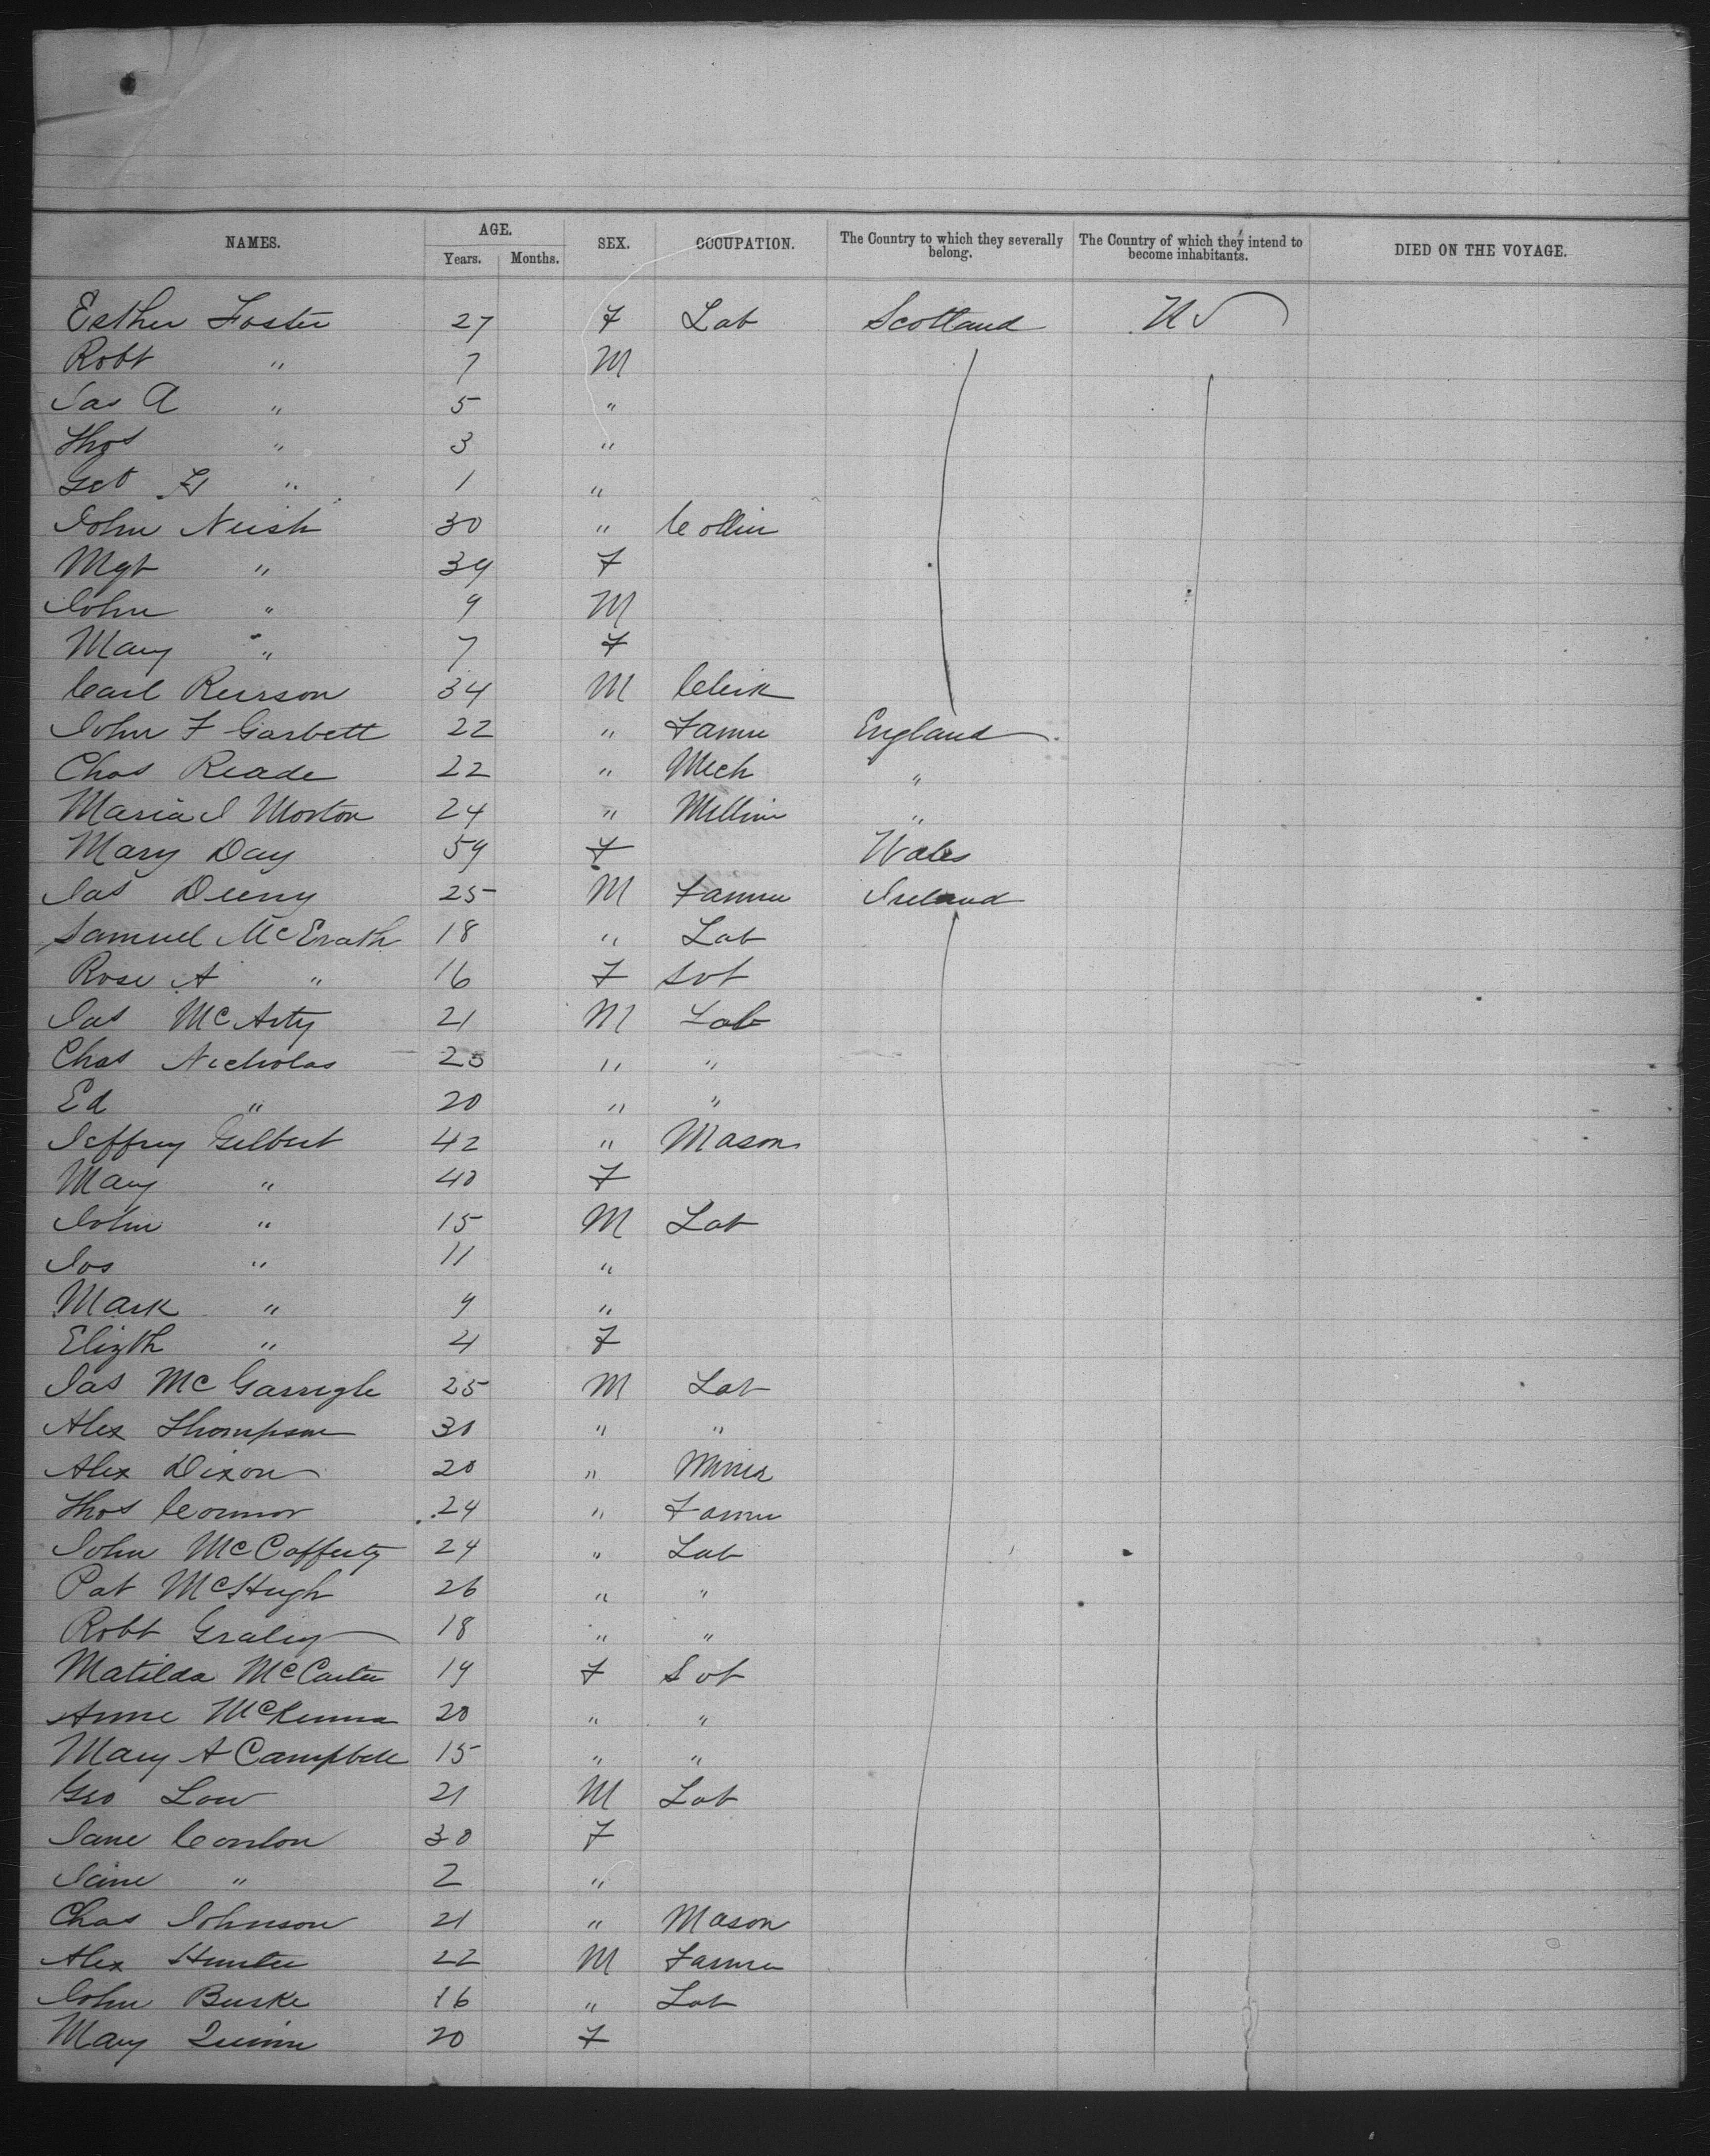 NAMES. AGE. SEX. OCCUPATION. The Country to which they severally belong. The Country of which they intend to become inhabitants. DIED ON THE VOYAGE.
Years. Months.
Esther Foster 27 F Lab Scotland US
Robt " 7 M
Jas A " 5 "
Thos " 3 "
Geo " 1 "
John Neish 30 " Collier
Mgt " 39 F
John " 9 M
Mary " 7 F
Carl Reirson 34 M Clerk
John F Garbett 22 " Farmer England
Chas Reade 22 " Mech "
Maria J Morton 24 " Milliner "
Mary Day 59 F Wales
Jas Deeny 25 M Farmer Ireland
Samuel McErath 18 " Lab
Rose A " 16 F Svt
Jas McArty 21 M Lab
Chas Nicholas 25 " "
Ed " 20 " "
Jeffrey Gilbert 42 " Mason
Mary " 40 F
John " 15 M Lab
Jos " 11 "
Mark " 9 "
Elizth " 4 F
Jas McGarrigle 25 M Lab
Alex Thompson 30 " "
Alex Dixon 20 " Miner
Thos Connor 24 " Farmer
John McCafferty 24 " Lab
Pat McHugh 26 " "
Robt Graley 18 " "
Matilda McCarter 19 F Svt
Anne McKenna 20 " "
Mary A Campbell 15 " "
Geo Low 21 M Lab
Jane Conlon 30 F
Jane " 2 "
Chas Johnson 21 " Mason
Alex Hunter 22 M Farmer
John Burke 16 " Lab
Mary Quinn 20 F